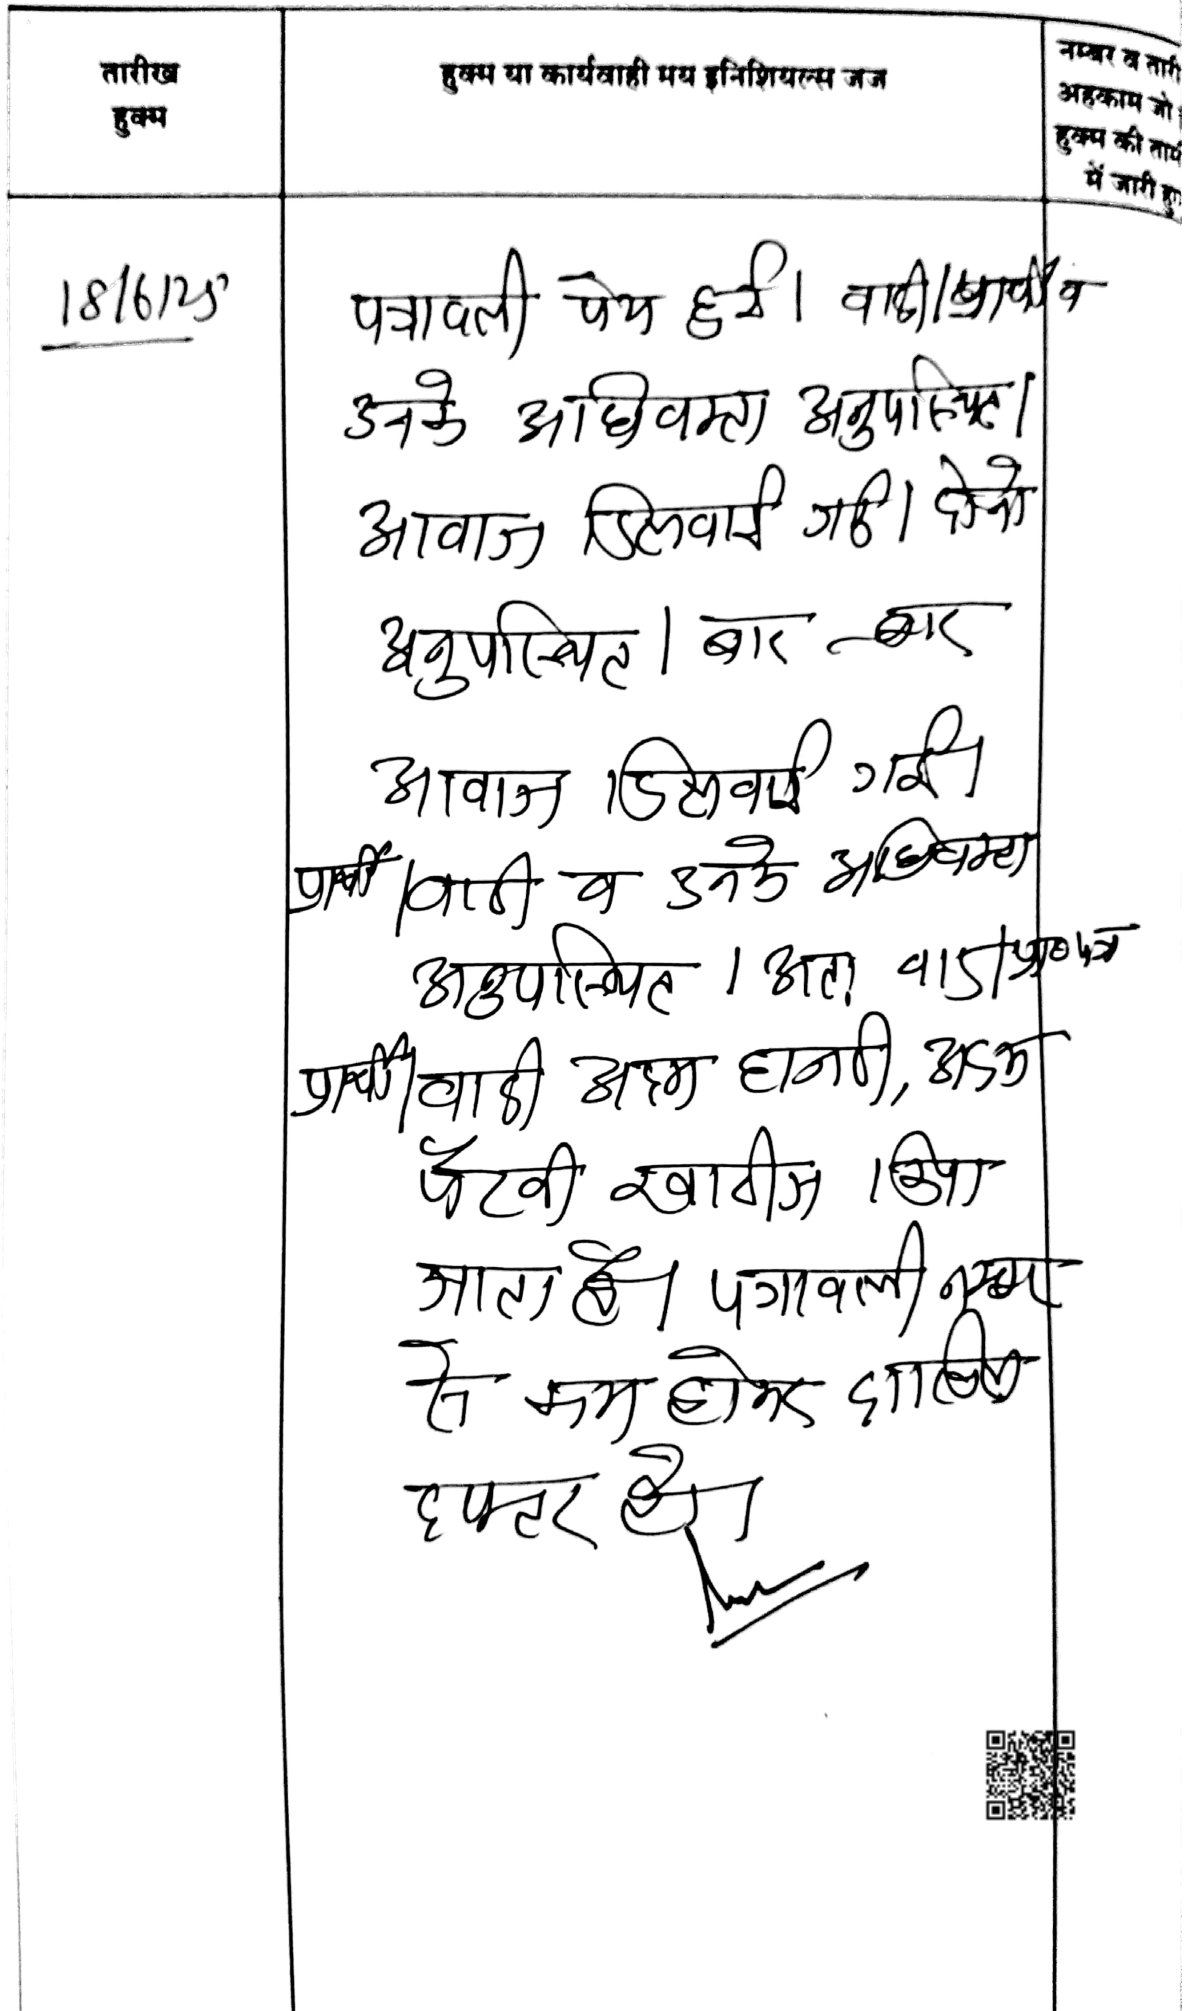 तारीख
हुक्म
हुक्म या कार्यवाही मय इनिशियल्स जज
नम्बर व तारी
अहकाम जो
हुक्म की ताम
में जारी हुए
18/6/25
पत्रावली पेश हुई। वादी/प्रार्थी व
उनके अधिवक्ता अनुपस्थित।
आवाज दिलवाई गई। दोनो
अनुपस्थित। बार-बार
आवाज दिलवाई गई।
प्रार्थी/वादी व उनके अधिवक्ता
अनुपस्थित। अतः वाद/प्रा०पत्र
प्रार्थी/वादी अदम हाजरी, अदम
पैरवी खारीज किया
जाता है। पत्रावली नम्बर
से कम होकर दाखिल
दफ्तर हो।